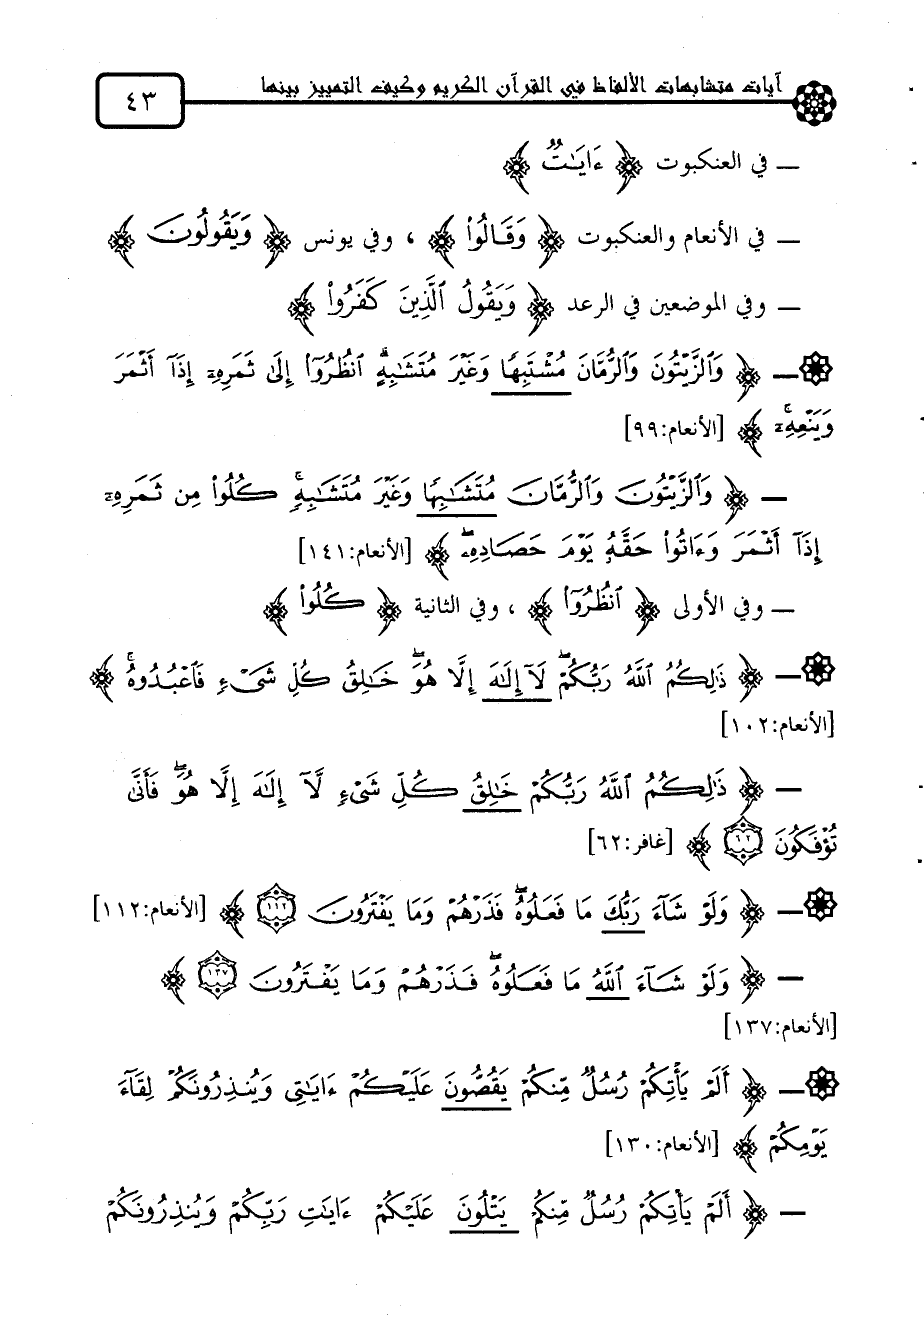 آيات متشابهات الألفاظ في القرآن الكريم وكيف التمييز بينها
٤٣
ــ في العنكبوت ﴿ ءَايَٰتٌ ﴾
ــ في الأنعام والعنكبوت ﴿ وَقَالُواْ ﴾ ، وفي يونس ﴿ وَيَقُولُونَ ﴾
ــ وفي الموضعين في الرعد ﴿ وَيَقُولُ ٱلَّذِينَ كَفَرُواْ ﴾
ــ ﴿ وَٱلزَّيْتُونَ وَٱلرُّمَّانَ مُشْتَبِهًا وَغَيْرَ مُتَشَٰبِهٍۗ ٱنظُرُوٓاْ إِلَىٰ ثَمَرِهِۦٓ إِذَآ أَثْمَرَ
وَيَنْعِهِۦٓۚ ﴾ [الأنعام:٩٩]
ــ ﴿ وَٱلزَّيْتُونَ وَٱلرُّمَّانَ مُتَشَٰبِهًا وَغَيْرَ مُتَشَٰبِهٍۚ كُلُواْ مِن ثَمَرِهِۦٓ
إِذَآ أَثْمَرَ وَءَاتُواْ حَقَّهُۥ يَوْمَ حَصَادِهِۦۖ ﴾ [الأنعام:١٤١]
ــ وفي الأولى ﴿ ٱنظُرُوٓاْ ﴾ ، وفي الثانية ﴿ كُلُواْ ﴾
ــ ﴿ ذَٰلِكُمُ ٱللَّهُ رَبُّكُمْۖ لَآ إِلَٰهَ إِلَّا هُوَۖ خَٰلِقُ كُلِّ شَىْءٍ فَٱعْبُدُوهُۚ ﴾
[الأنعام:١٠٢]
ــ ﴿ ذَٰلِكُمُ ٱللَّهُ رَبُّكُمْ خَٰلِقُ كُلِّ شَىْءٍ لَّآ إِلَٰهَ إِلَّا هُوَۖ فَأَنَّىٰ
تُؤْفَكُونَ ٦٢ ﴾ [غافر:٦٢]
ــ ﴿ وَلَوْ شَآءَ رَبُّكَ مَا فَعَلُوهُۖ فَذَرْهُمْ وَمَا يَفْتَرُونَ ١١٢ ﴾ [الأنعام:١١٢]
ــ ﴿ وَلَوْ شَآءَ ٱللَّهُ مَا فَعَلُوهُۖ فَذَرْهُمْ وَمَا يَفْتَرُونَ ١٣٧ ﴾
[الأنعام:١٣٧]
ــ ﴿ أَلَمْ يَأْتِكُمْ رُسُلٌ مِّنكُمْ يَقُصُّونَ عَلَيْكُمْ ءَايَٰتِى وَيُنذِرُونَكُمْ لِقَآءَ
يَوْمِكُمْ ﴾ [الأنعام:١٣٠]
ــ ﴿ أَلَمْ يَأْتِكُمْ رُسُلٌ مِّنكُمْ يَتْلُونَ عَلَيْكُمْ ءَايَٰتِ رَبِّكُمْ وَيُنذِرُونَكُمْ